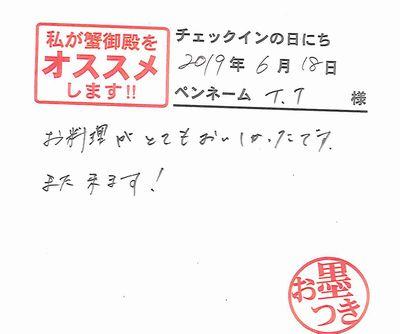 私が蟹御殿を
オススメ
します!!
チェックインの日にち
2019年6月18日
ペンネーム T.T 様
お料理がとてもおいしかったです。
また来ます！
お墨
つき